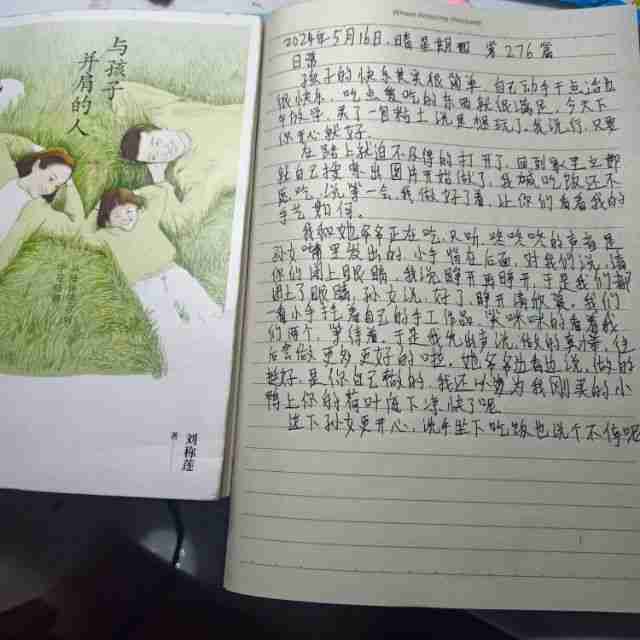 与孩子
并肩的人
刘称莲
著
2024年5月16日，晴 星期四 第276篇
日录
孩子的快乐其实很简单，自己动手干点活就
很快乐，吃点爱吃的东西就很满足，今天下
午放学，买了一包粘土说是爆玩了，我说行，只要
你开心就好。
在路上就迫不及待的打开了，回到家里立即
就自己按图片开始做了，我喊吃饭还不
吃，说等一会，我做好了着，让你们看看我的
手艺如何。
我和她爷爷正在吃，又听咚咚咚的声音是
孙女嘴里发出的，小手背在后面，对我们说，请
你们闭上眼睛，我说睁开再睁开，于是我们都
闭上了眼睛，孙女说，好了睁开请欣赏。我们
一看小手托着自己的手工作品，笑咪咪的看着我
们两个，等待着，于是我先出声说，做的真棒，往
后会做更多更好的啦，她爷爷边看边说，做的
挺好，是你自己做的，我还以为为我刚买的小
鸭上你的荷叶底下凉快了呢
这下孙女更开心，洗手坐下吃饭也说个不停呢